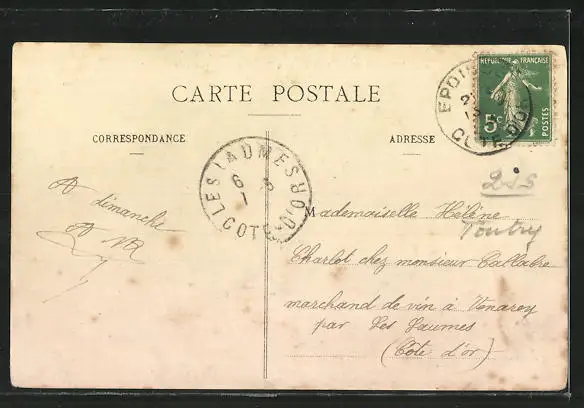 CARTE POSTALE
CORRESPONDANCE
ADRESSE
RÉPUBLIQUE FRANÇAISE
5c
POSTES
EPOI
COTE D'OR
LES LAUMES
6
1
COTE-D'OR
A dimanche
Mademoiselle Hélène
Toutry
Charlot chez monsieur Callabre
marchand de vin à Venarey
par Les Laumes
(Côte d'or)